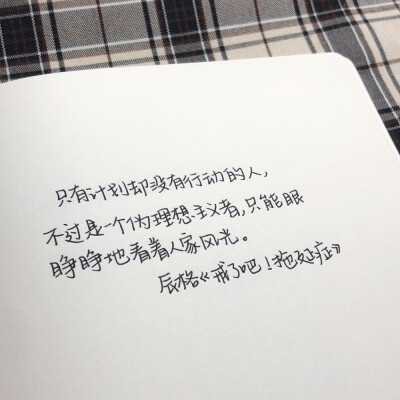 只有计划却没有行动的人，
不过是一个伪理想主义者，只能眼
睁睁地看着人家风光。
辰格《戒了吧！拖延症》